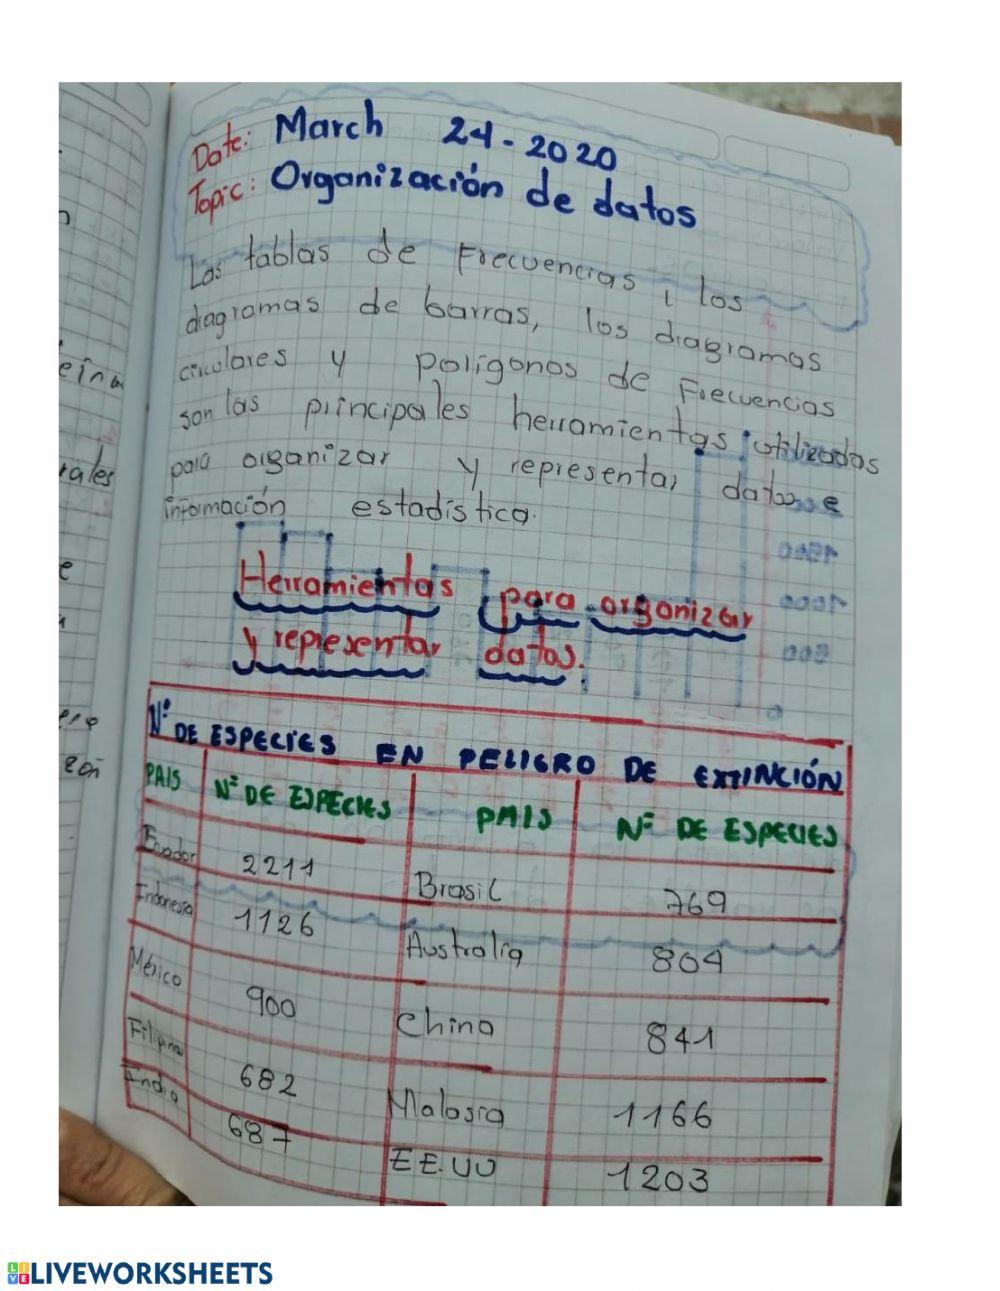 Date: March 24-2020
Topic: Organización de datos
Las tablas de Frecuencias, los
diagramas de barras, los diagramas
circulares y polígonos de Frecuencias
son las principales herramientas utilizadas
para organizar y representar datos e
información estadística.
Herramientas para organizar
y representar datos.
Nº DE ESPECIES EN PELIGRO DE EXTINCIÓN
PAIS Nº DE ESPECIES PAIS Nº DE ESPECIES
Ecuador 2211 Brasil 769
Indonesia 1126 Australia 804
México 900 China 841
Filipina 682 Malasia 1166
India 687 EE.UU 1203
eina
rales
e
LIVEWORKSHEETS